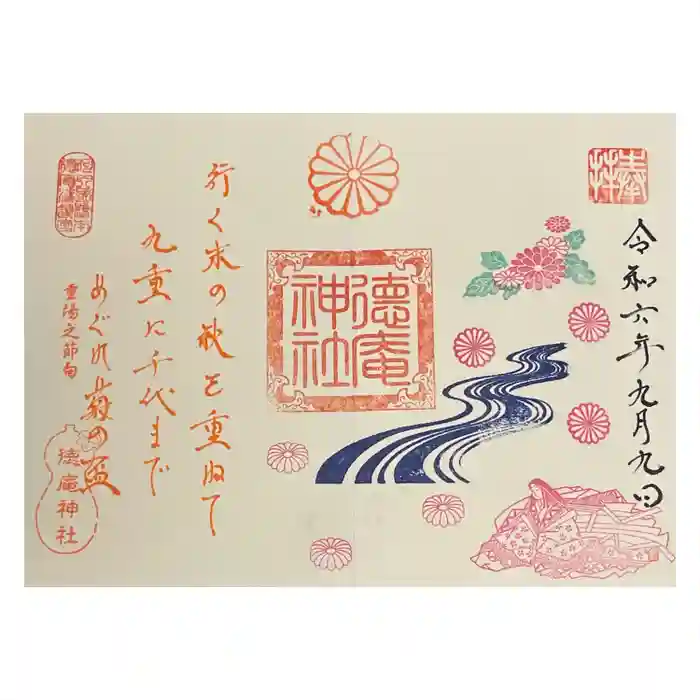 奉拝
令和六年九月九日
德庵
神社
行く水の秋を重ねて
九重に千代まで
めぐれ菊の盃
重陽之節句
徳庵神社